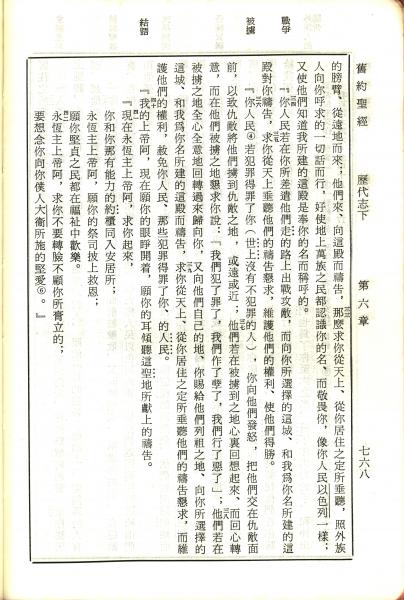 舊約聖經 歷代志下 第六章 七六八
的膀臂、從遠地而來;他們來、向這殿而禱告,那麼求你從天上、從你居住之定所垂聽,照外族
人向你呼求的一切話而行,好使地上萬族之民都認識你的名、而敬畏你,像你人民以色列一樣;
又使他們知道我所建的這殿是奉你的名而稱呼的。
戰爭
『你人民若在你所差遣他們走的路上出戰攻敵,而向你所選擇的這城、和我爲你名所建的這
殿對你禱告,求你從天上垂聽他們的禱告懇求,維護他們的權利、使他們得勝。
被擄
『你人民④若犯罪得罪了你(世上沒有不犯罪的人),你向他們發怒,把他們交在仇敵面
前,以致仇敵將他們擄到仇敵之地,或遠或近;他們若在被擄到之地心裏回想起來、而回心轉
意,而在他們被擄之地懇求你說:「我們犯了罪了,我們作了孽了,我們行了惡了」;他們若在
被擄之地全心全意地回轉過來歸向你,又向他們自己的地、你賜給他們列祖之地、向你所選擇的
這城、和我爲你名所建的這殿而禱告,求你從天上、從你居住之定所垂聽他們的禱告懇求,而維
護他們的權利,赦免你人民、那些犯罪得罪了你、的人民。
結語
『我的上帝阿,現在願你的眼睜開着,願你的耳傾聽這聖地所獻上的禱告。
『現在永恆主上帝阿,求你起來,
你和你那有能力的約櫃同入安居所;
永恆主上帝阿,願你的祭司披上救恩;
願你堅貞之民都在福祉中歡樂。
永恆主上帝阿,求你不要轉臉不顧你所膏立的;
要想念你向你僕人大衛所施的堅愛⑥。』